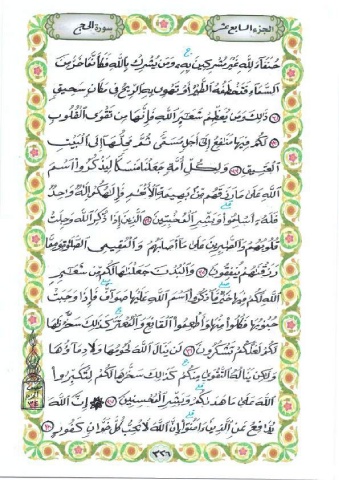 الجزء السابع عشر
سورة الحج
حُنَفَآءَ لِلَّهِ غَيْرَ مُشْرِكِينَ بِهِۦ وَمَن يُشْرِكْ بِٱللَّهِ فَكَأَنَّمَا خَرَّ مِنَ
ٱلسَّمَآءِ فَتَخْطَفُهُ ٱلطَّيْرُ أَوْ تَهْوِى بِهِ ٱلرِّيحُ فِى مَكَانٍ سَحِيقٍ
٣١ ذَٰلِكَ وَمَن يُعَظِّمْ شَعَٰٓئِرَ ٱللَّهِ فَإِنَّهَا مِن تَقْوَى ٱلْقُلُوبِ
٣٢ لَكُمْ فِيهَا مَنَٰفِعُ إِلَىٰٓ أَجَلٍ مُّسَمًّى ثُمَّ مَحِلُّهَآ إِلَى ٱلْبَيْتِ
ٱلْعَتِيقِ ٣٣ وَلِكُلِّ أُمَّةٍ جَعَلْنَا مَنسَكًا لِّيَذْكُرُوا۟ ٱسْمَ
ٱللَّهِ عَلَىٰ مَا رَزَقَهُم مِّنۢ بَهِيمَةِ ٱلْأَنْعَٰمِ فَإِلَٰهُكُمْ إِلَٰهٌ وَٰحِدٌ
فَلَهُۥٓ أَسْلِمُوا۟ وَبَشِّرِ ٱلْمُخْبِتِينَ ٣٤ ٱلَّذِينَ إِذَا ذُكِرَ ٱللَّهُ وَجِلَتْ
قُلُوبُهُمْ وَٱلصَّٰبِرِينَ عَلَىٰ مَآ أَصَابَهُمْ وَٱلْمُقِيمِى ٱلصَّلَوٰةِ وَمِمَّا
رَزَقْنَٰهُمْ يُنفِقُونَ ٣٥ وَٱلْبُدْنَ جَعَلْنَٰهَا لَكُم مِّن شَعَٰٓئِرِ
ٱللَّهِ لَكُمْ فِيهَا خَيْرٌ فَٱذْكُرُوا۟ ٱسْمَ ٱللَّهِ عَلَيْهَا صَوَآفَّ فَإِذَا وَجَبَتْ
جُنُوبُهَا فَكُلُوا۟ مِنْهَا وَأَطْعِمُوا۟ ٱلْقَانِعَ وَٱلْمُعْتَرَّ كَذَٰلِكَ سَخَّرْنَٰهَا
لَكُمْ لَعَلَّكُمْ تَشْكُرُونَ ٣٦ لَن يَنَالَ ٱللَّهَ لُحُومُهَا وَلَا دِمَآؤُهَا
وَلَٰكِن يَنَالُهُ ٱلتَّقْوَىٰ مِنكُمْ كَذَٰلِكَ سَخَّرَهَا لَكُمْ لِتُكَبِّرُوا۟
ٱللَّهَ عَلَىٰ مَا هَدَىٰكُمْ وَبَشِّرِ ٱلْمُحْسِنِينَ ٣٧ إِنَّ ٱللَّهَ
يُدَٰفِعُ عَنِ ٱلَّذِينَ ءَامَنُوٓا۟ إِنَّ ٱللَّهَ لَا يُحِبُّ كُلَّ خَوَّانٍ كَفُورٍ ٣٨
٣٣٦